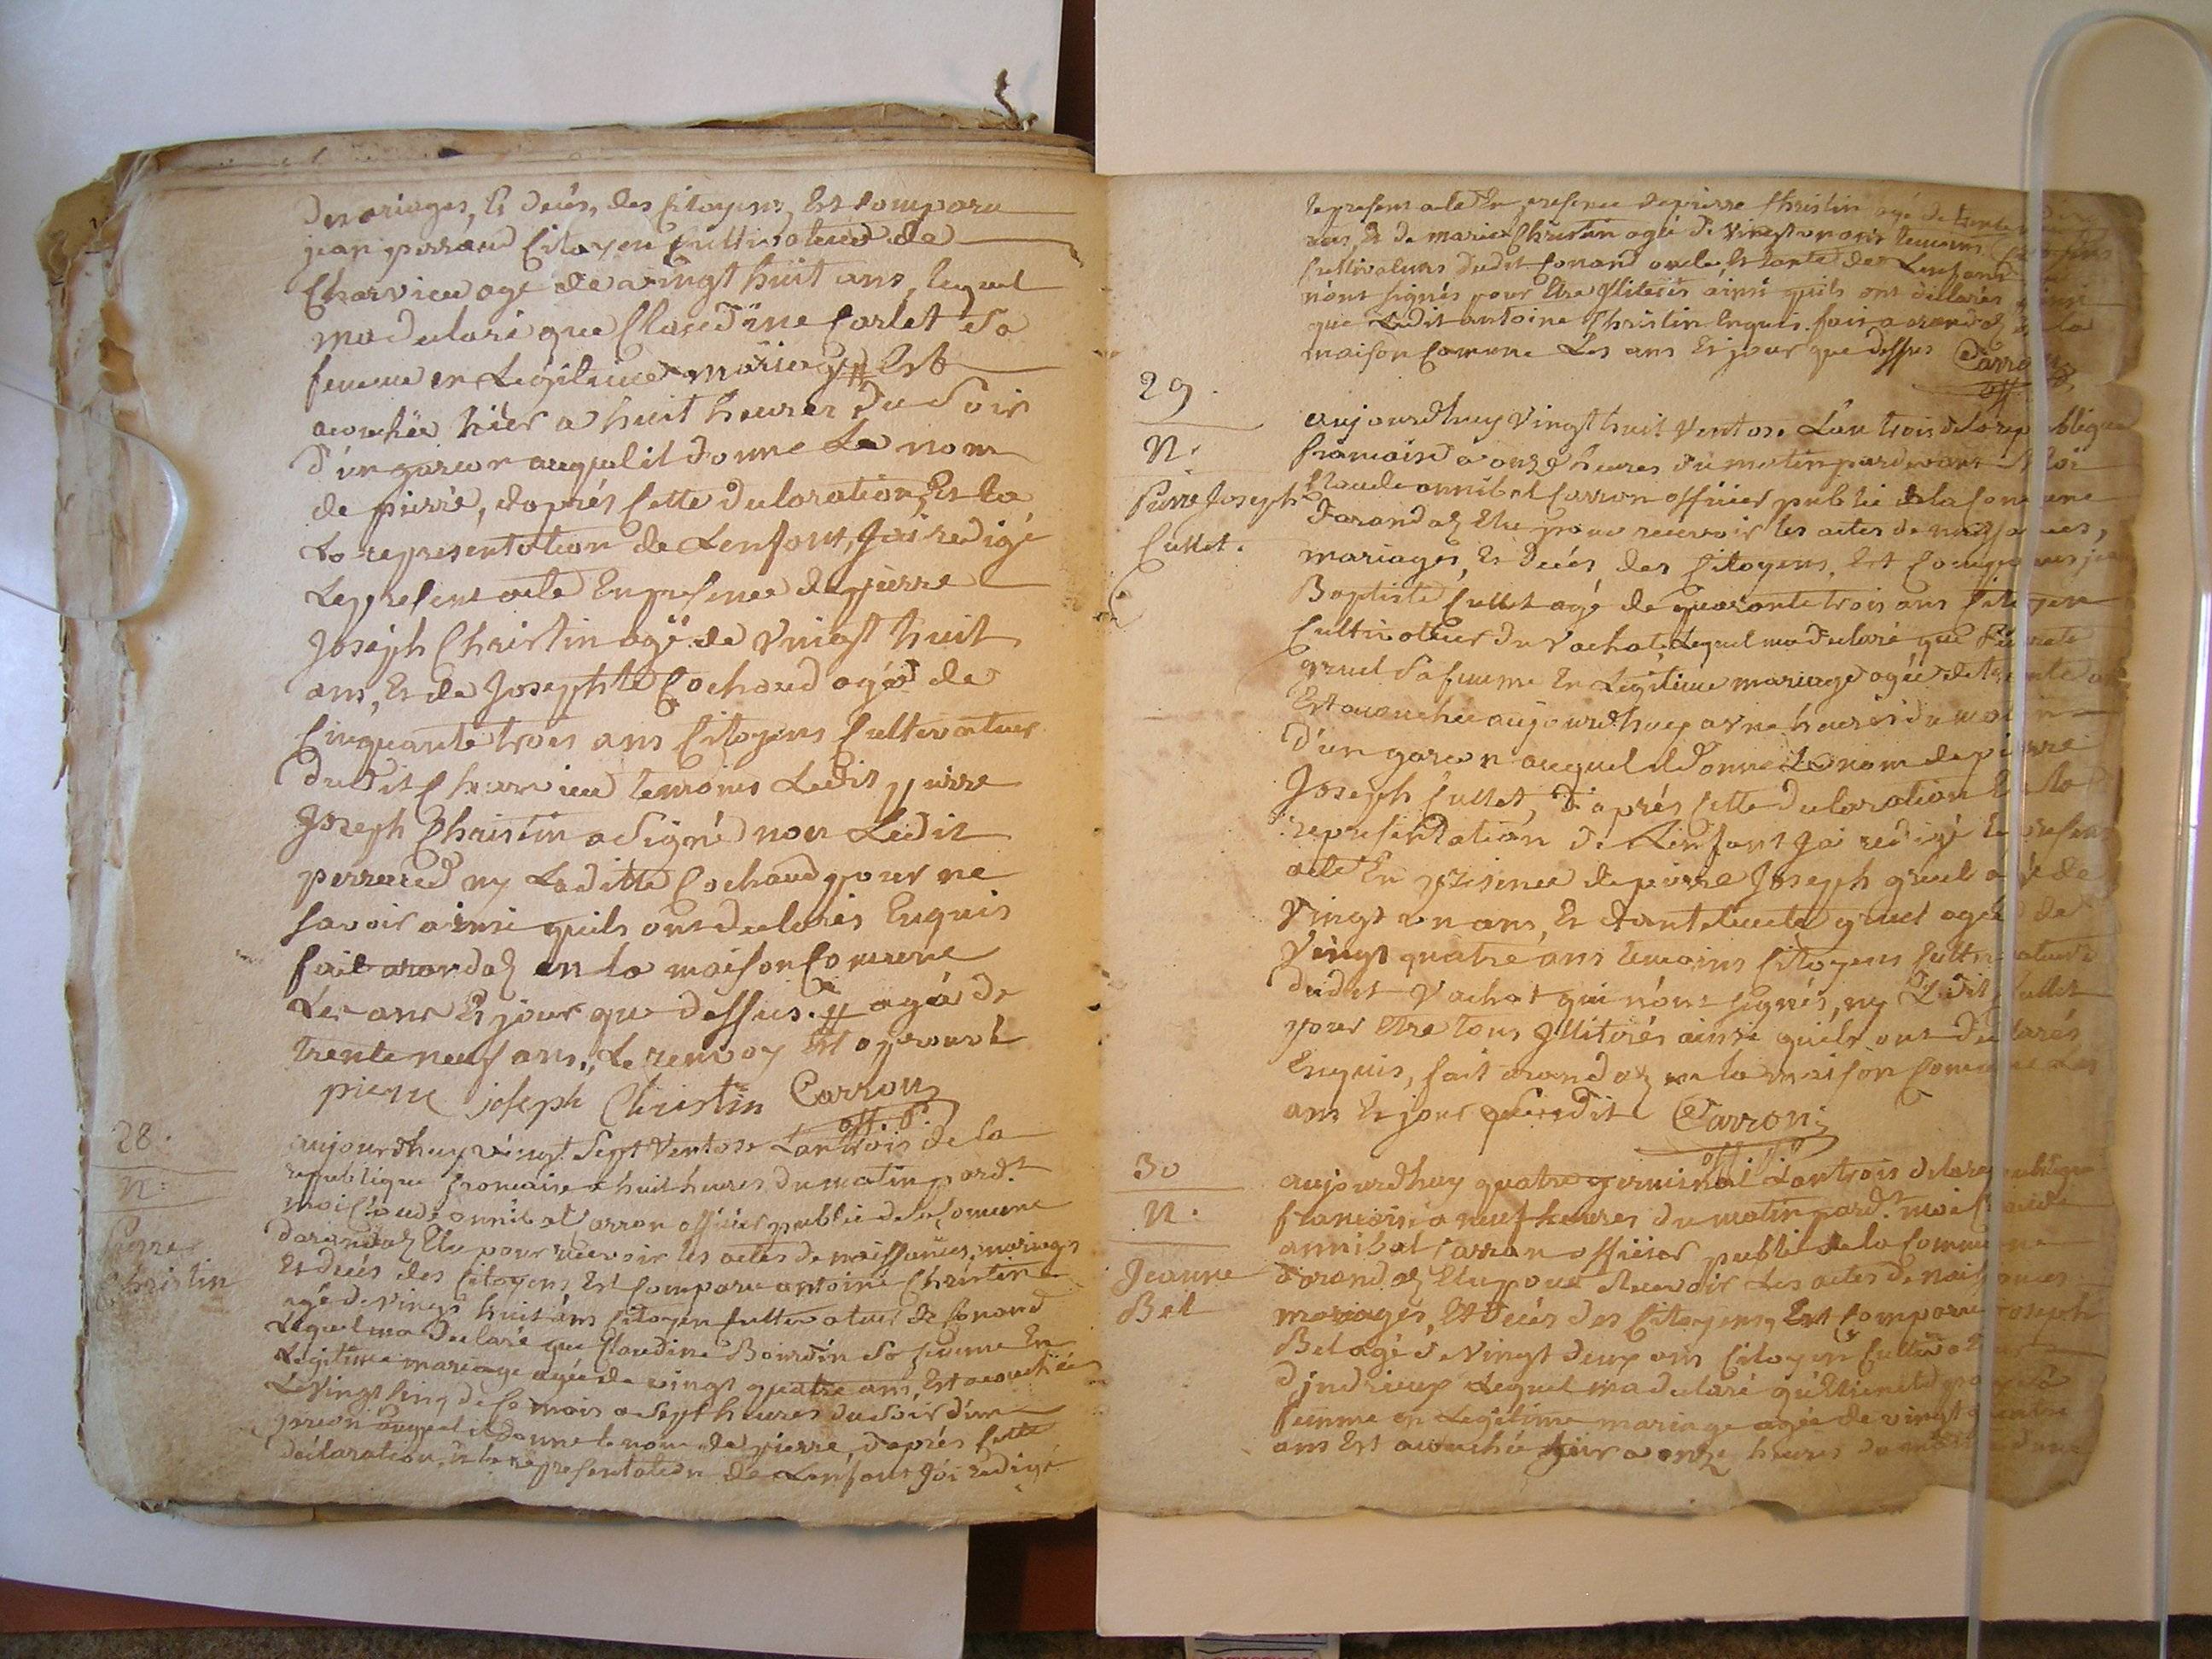 de mariages, Et decés, des Citoyens, Est comparu
jean perraud Citoyen Cultivateur de
Charvieu agé de vingt huit ans, lequel
ma declaré que Claudine Carlet Sa
femme en Legitime mariage # Est
acouchée hier a huit heures du Soir
d'un garcon auquel il donne Le nom
de pierre, d'aprés Cette declaration, Et la
La representation de Lenfant, Jai redigé
Le present acte En presence de pierre
Joseph Christin agé de Vingt huit
ans, Et de Josephte Cochaud agée de
Cinquante trois ans Citoyens Cultivateur
dudit Charvieu temoins Ledit pierre
Joseph Christin a Signé non Ledit
perraud ny Laditte Cochaud pour ne
Savoir ainsi quils ont declarés Enquis
fait arandaz en la maison Comune
Les ans Et jour que dessus. # agée de
trente neuf ans, Le renvoy Est aprouvé
pierre joseph Christin Carron
off. P.
28.
N.
Pierre
Christin
aujourdhuy vingt Sept Ventose Lan trois de la
republique francaise a huit heures du matin pard.t
moi Claude annibal Carron officier public de la Comune
darandaz Elu pour recevoir les actes de naissances, mariages
Et decés des Citoyens, Est Comparu antoine Christin
agé de vingt huit ans Citoyen Cultivateur de Conand
Lequel ma declaré que Claudine Bourdin Sa femme En
Legitime mariage agée de vingt quatre ans, Est acouchée
Le Vingt Cinq de Ce mois a Sept heures du Soir d'un
garcon auquel il donne le nom de pierre, d'aprés Cette
declaration, Et la representation de Lenfant Jai redigé
le present acte En presence de pierre Christin agé de trente
ans, Et de marie Christin agée de Vingt un ans temoins Citoyens
Cultivateurs dudit Conand oncle, Et tante de Lenfant
n'ont signés pour Etre Illiterés ainsi quils ont declarés ainsi
que Ledit antoine Christin Enquis. fait a arandaz en la
maison Comune Les ans Et jour que dessus Carron
off.
29.
N.
Pierre Joseph
Cullet.
aujourdhuy Vingt huit Ventose Lan trois de la republique
francaise a onze heures du matin pardevant Moi
Claude annibal Carron officier public de la Commune
d'arandaz Elu pour recevoir les actes de naissances,
mariages, Et decés, des Citoyens, Est Comparus jean
Baptiste Cullet agé de quarante trois ans Citoyen
Cultivateur du Vachat, Lequel ma declaré que
gruel Sa femme En Legitime mariage agée de trente ans
Est acouchée aujourdhuy a une heures du matin
d'un garcon auquel il donne Le nom de pierre
Joseph Cullet, d'aprés Cette declaration Et la
representation de Lenfant Jai redigé le present
acte En presence de pierre Joseph gruel agé de
Vingt un ans, Et d'antelmette gruel agée de
Vingt quatre ans temoins Citoyens Cultivateurs
dudit Vachat qui n'ont signés, ny Ledit Cullet
pour Etre tous Illiterés ainsi quils ont declarés
Enquis, fait arandaz en la maison Comune Les
ans Et jour que dit Carron
off. P.
30
N.
Jeanne
Bel
aujourdhuy quatre germinal Lan trois de la republique
francaise a neuf heures du matin pard.t moi Claude
annibal Carron officier public de la Commune
d'arandaz Elu pour recevoir Les actes de Naissances
mariages, Et Decés des Citoyens, Est Comparu joseph
Bel agé de Vingt deux ans Citoyen Cultivateur
d'indrieux Lequel m'a declaré qu'Etiennette Sa
femme en Legitime mariage agée de vingt quatre
ans Est acouchée hier a onze heures du matin d'une